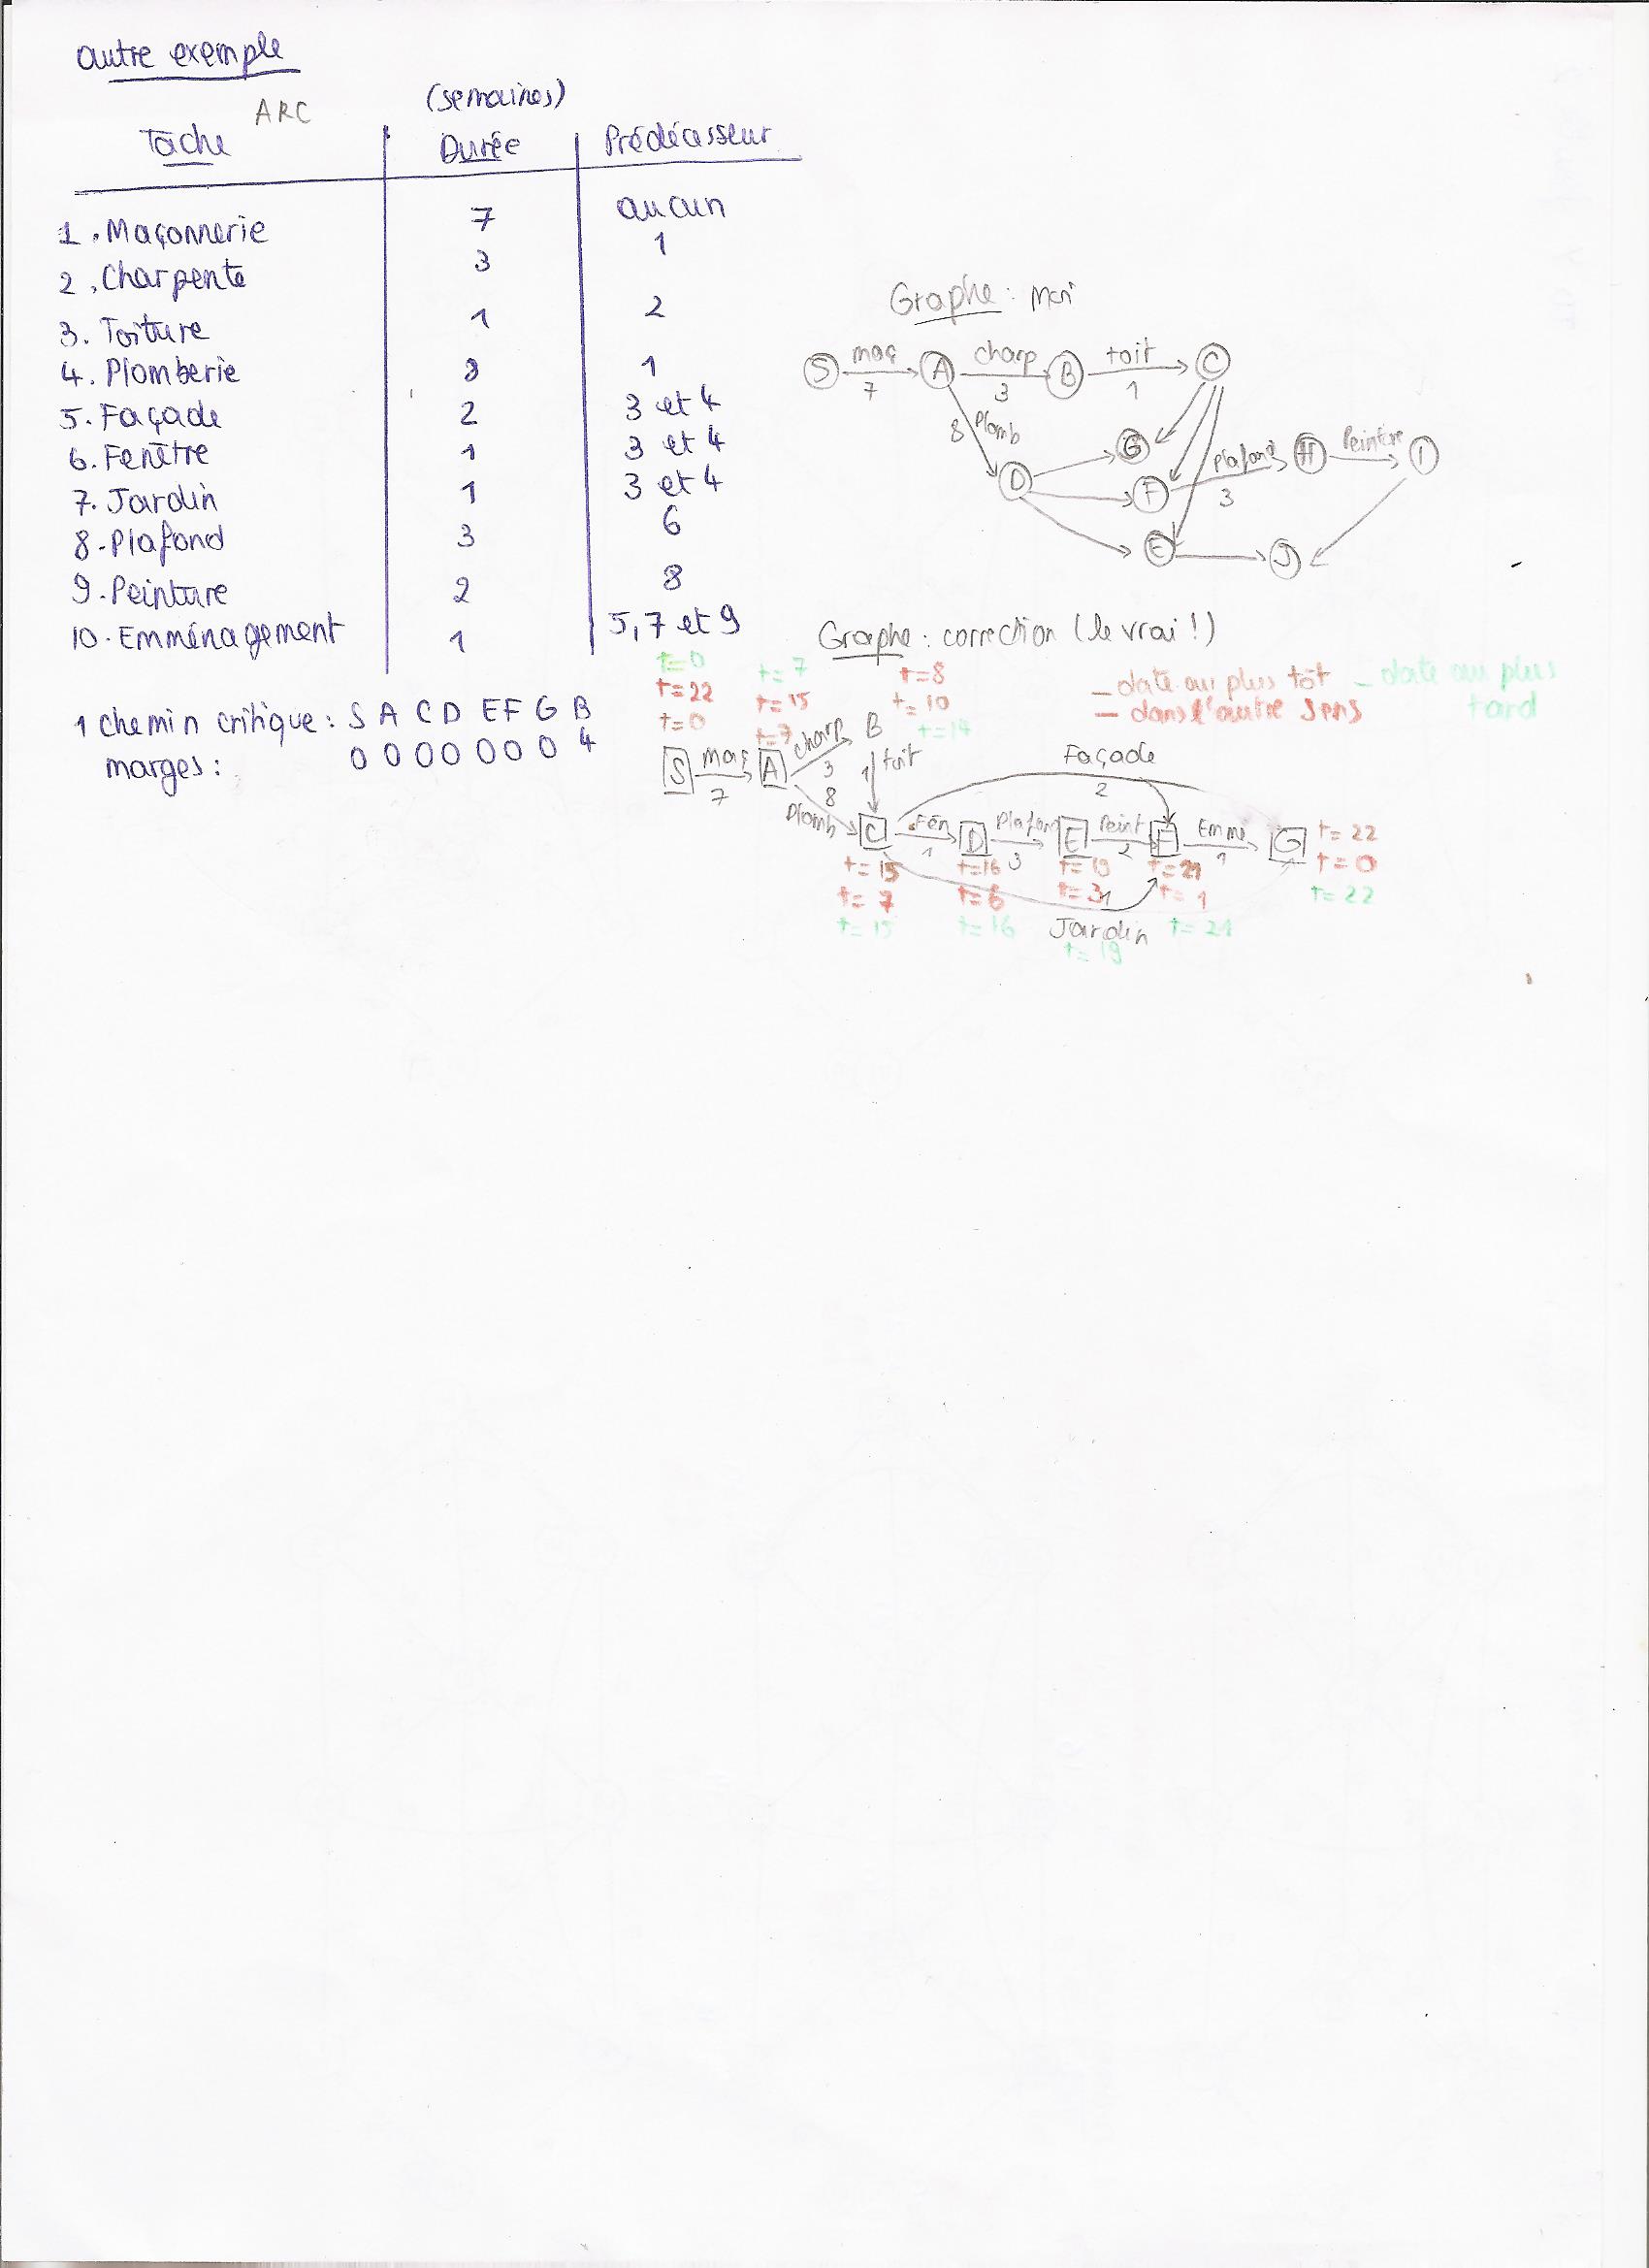 autre exemple
ARC
(semaines)
Tâche Durée Prédécasseur
1. Maçonnerie 7 aucun
2. Charpente 3 1
3. Toiture 1 2
4. Plomberie 8 1
5. Façade 2 3 et 4
6. Fenêtre 1 3 et 4
7. Jardin 1 3 et 4
8. Plafond 3 6
9. Peinture 2 8
10. Emménagement 1 5, 7 et 9
1 chemin critique : S A C D E F G B
marges : 0 0 0 0 0 0 0 4
Graphe : Moi
S maç 7 A charp 3 B toit 1 C
8 Plomb
D G F E
Plafond 3 H Peinture I
J
Graphe : correction (le vrai !)
– date au plus tôt – date au plus tard
– dans l'autre sens
t=0 t=7 t=8
t=22 t=15 t=10
t=0 t=7 t=14
S maç 7 A charp 3 B
toit 1
Plomb 8
Façade 2
C Fen 1 D Plafon 3 E Peint 2 F Emmé 1 G
t=15 t=16 t=19 t=21 t=22
t=7 t=6 t=3 t=1 t=0
t=15 t=16 t=19 t=21 t=22
Jardin 1